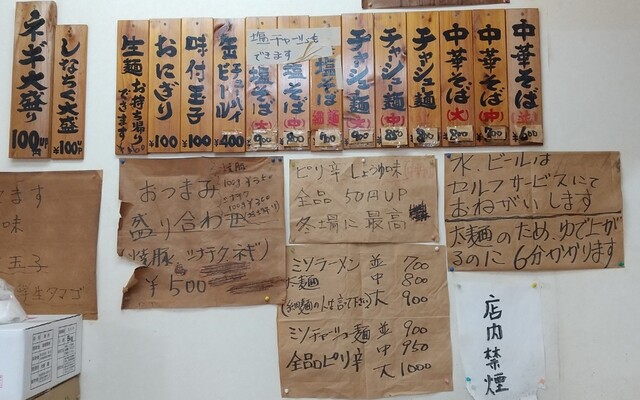 中華そば (並) 600
中華そば (中) 700
中華そば (大) 800
チャーシュ麺
チャーシュ麺 (中) 850
チャーシュ麺 (大) 900
塩チャーシュも
できます
塩そば
塩そば (中) 800
塩そば (大) 900
缶ビール
チューハイ
400
味付玉子 100
おにぎり 100
生麺お持ち帰り
できます
しなちく大盛 100円
ネギ大盛り 100円
ピリ辛 しょうゆ味
全品 50円UP
冬場に最高
水、ビールは
セルフサービスにて
おねがいします
太麺のため、ゆで上が
るのに 6分かかります
おつまみ
盛り合わせ
焼豚、シナチク、ネギ
¥500
ミソラーメン 並 700
太麺 中 800
大 900
ミソチャーシュー麺 並 900
中 950
全品ピリ辛
大 1000
店内禁煙
ます
味
玉子
生タマゴ